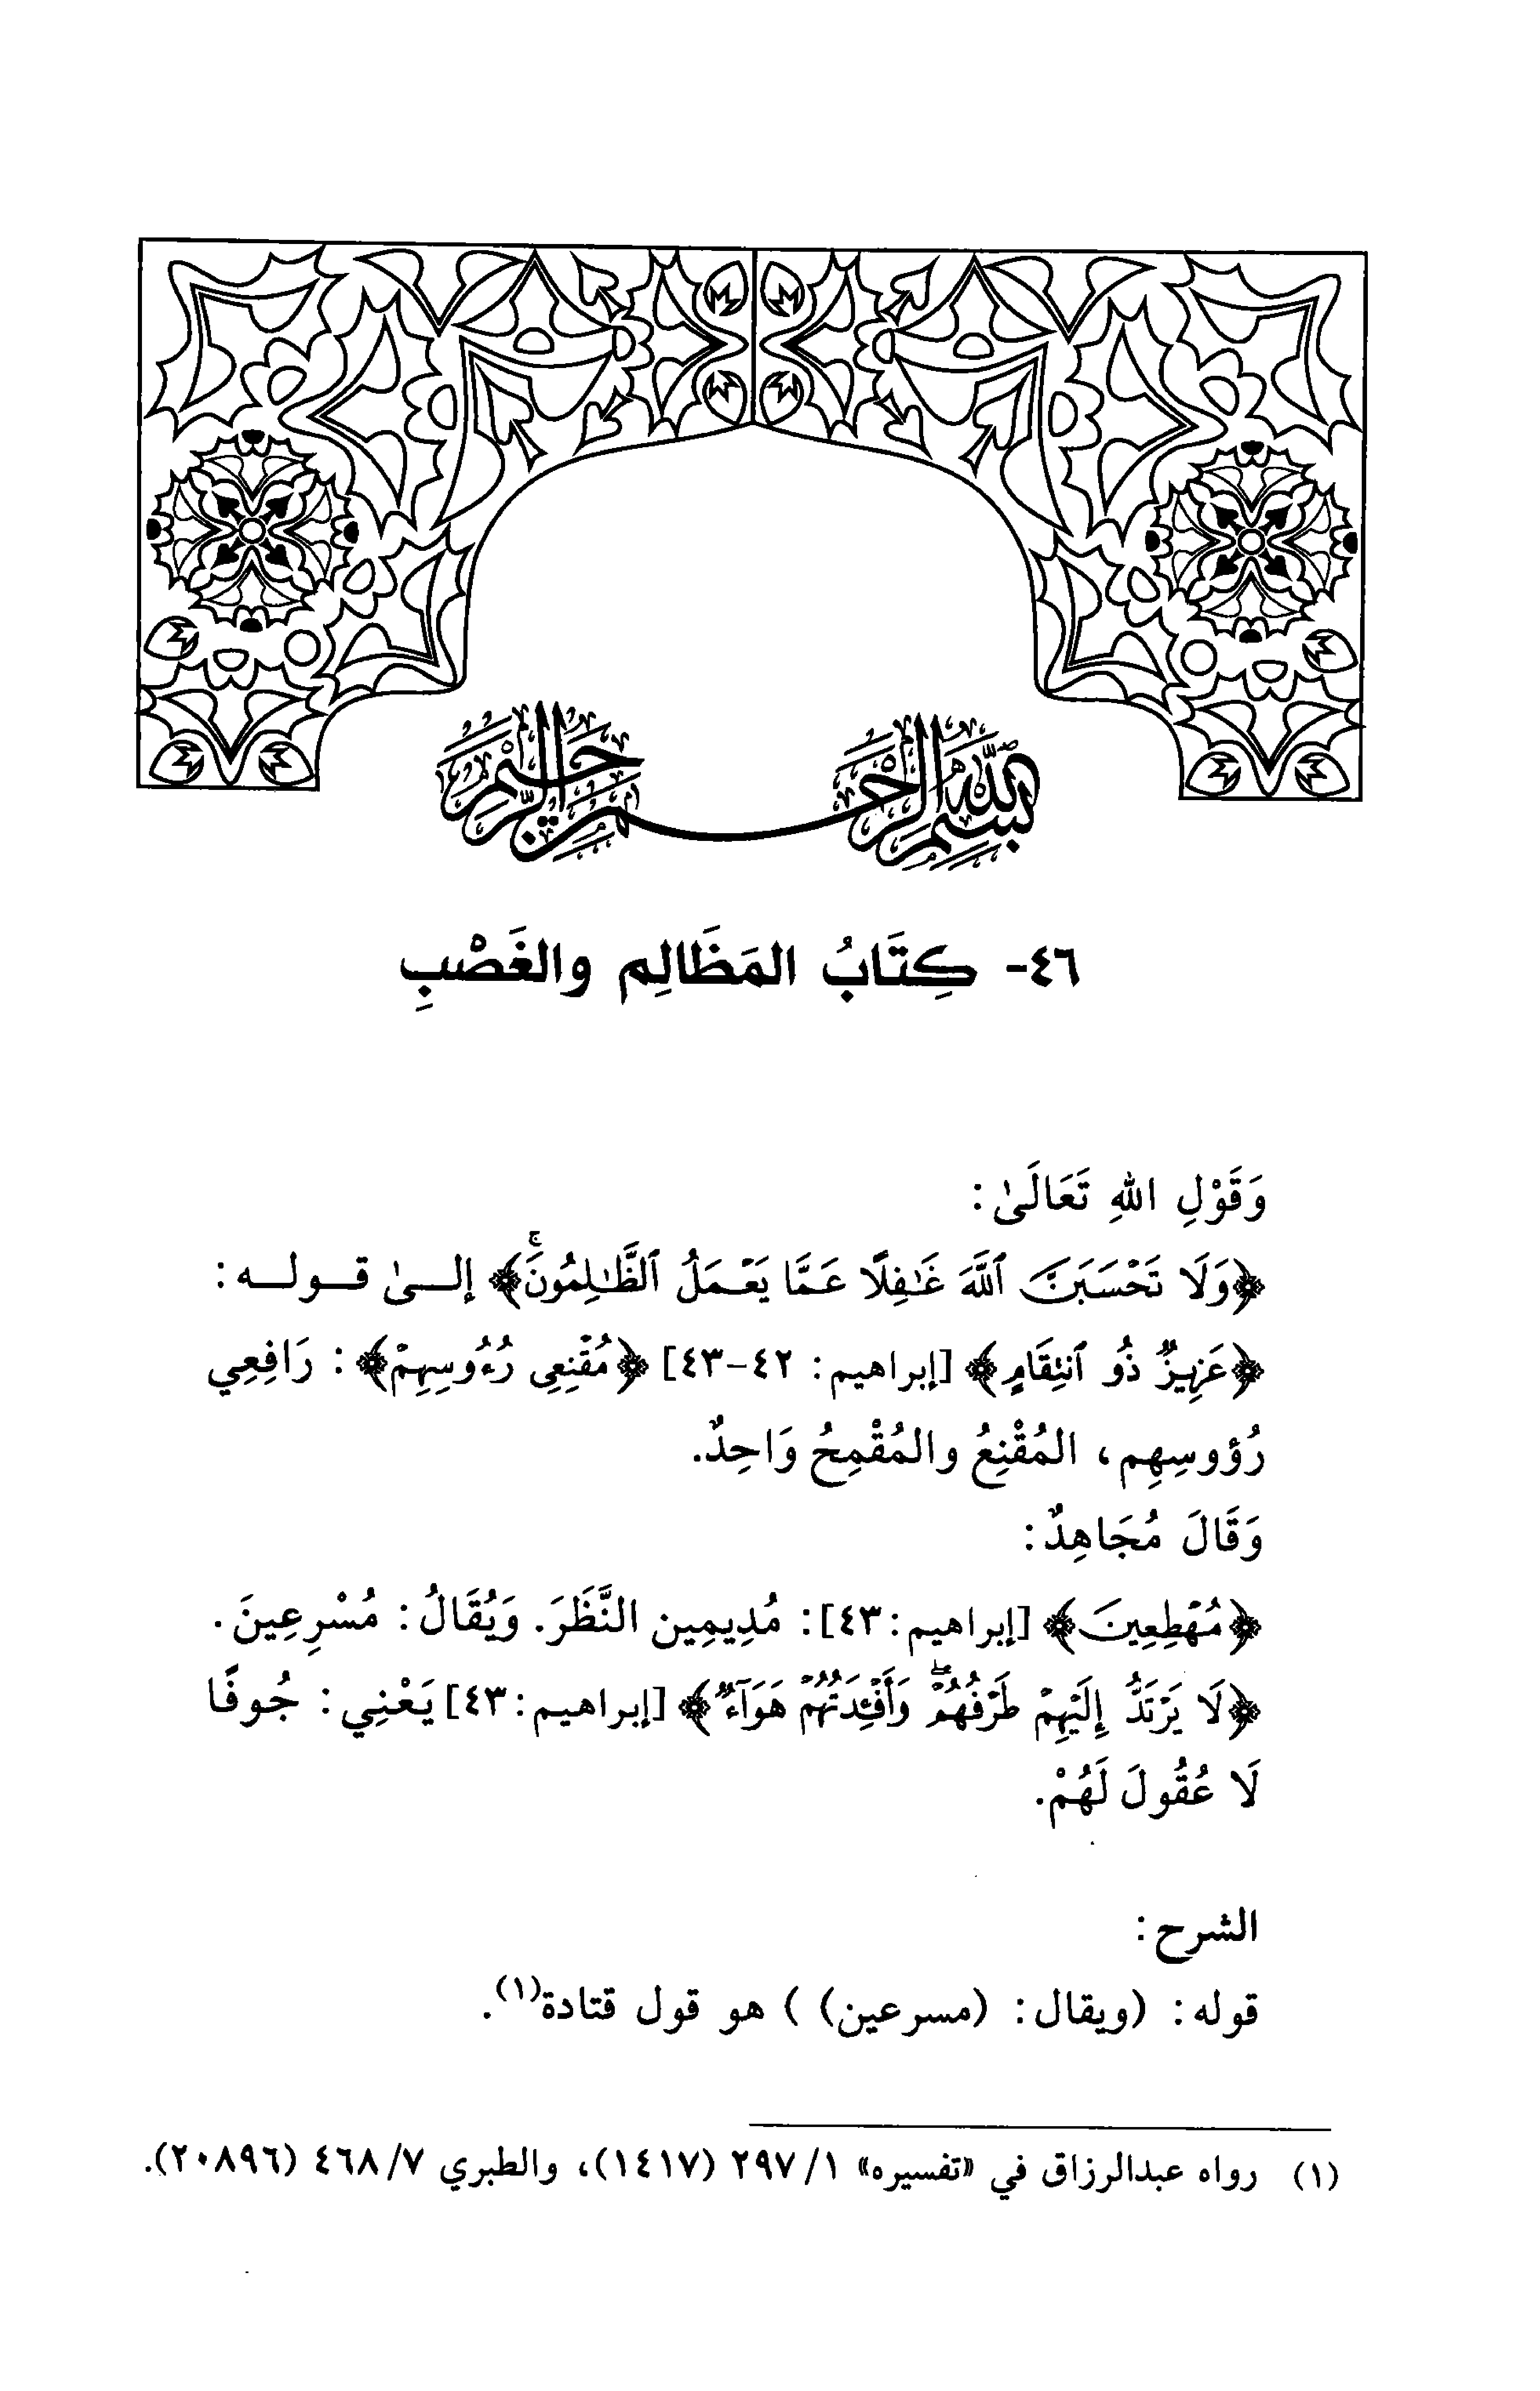 بسم الله الرحمن الرحيم
٤٦- كِتَابُ المَظَالِم والغَصْبِ
وَقَوْلِ اللهِ تَعَالَىٰ :
﴿وَلَا تَحْسَبَنَّ ٱللَّهَ غَـٰفِلًا عَمَّا يَعْمَلُ ٱلظَّـٰلِمُونَۚ﴾ إلـــىٰ قـــولـــه :
﴿عَزِيزٌ ذُو ٱنتِقَامٍ﴾ [إبراهيم: ٤٢-٤٣] ﴿مُقْنِعِى رُءُوسِهِمْ﴾ : رَافِعِي
رُؤوسِهِم، المُقْنِعُ والمُقْمِحُ وَاحِدٌ.
وَقَالَ مُجَاهِدٌ :
﴿مُهْطِعِينَ﴾ [إبراهيم:٤٣]: مُدِيمِين النَّظَرَ. وَيُقَالُ: مُسْرِعِينَ.
﴿لَا يَرْتَدُّ إِلَيْهِمْ طَرْفُهُمْۖ وَأَفْـِٔدَتُهُمْ هَوَآءٌ﴾ [إبراهيم:٤٣] يَعْنِي: جُوفًا
لَا عُقُولَ لَهُمْ.
الشرح :
قوله : (ويقال : (مسرعين) ) هو قول قتادة(١).
(١) رواه عبدالرزاق في «تفسيره» ١/ ٢٩٧ (١٤١٧)، والطبري ٧/ ٤٦٨ (٢٠٨٩٦).